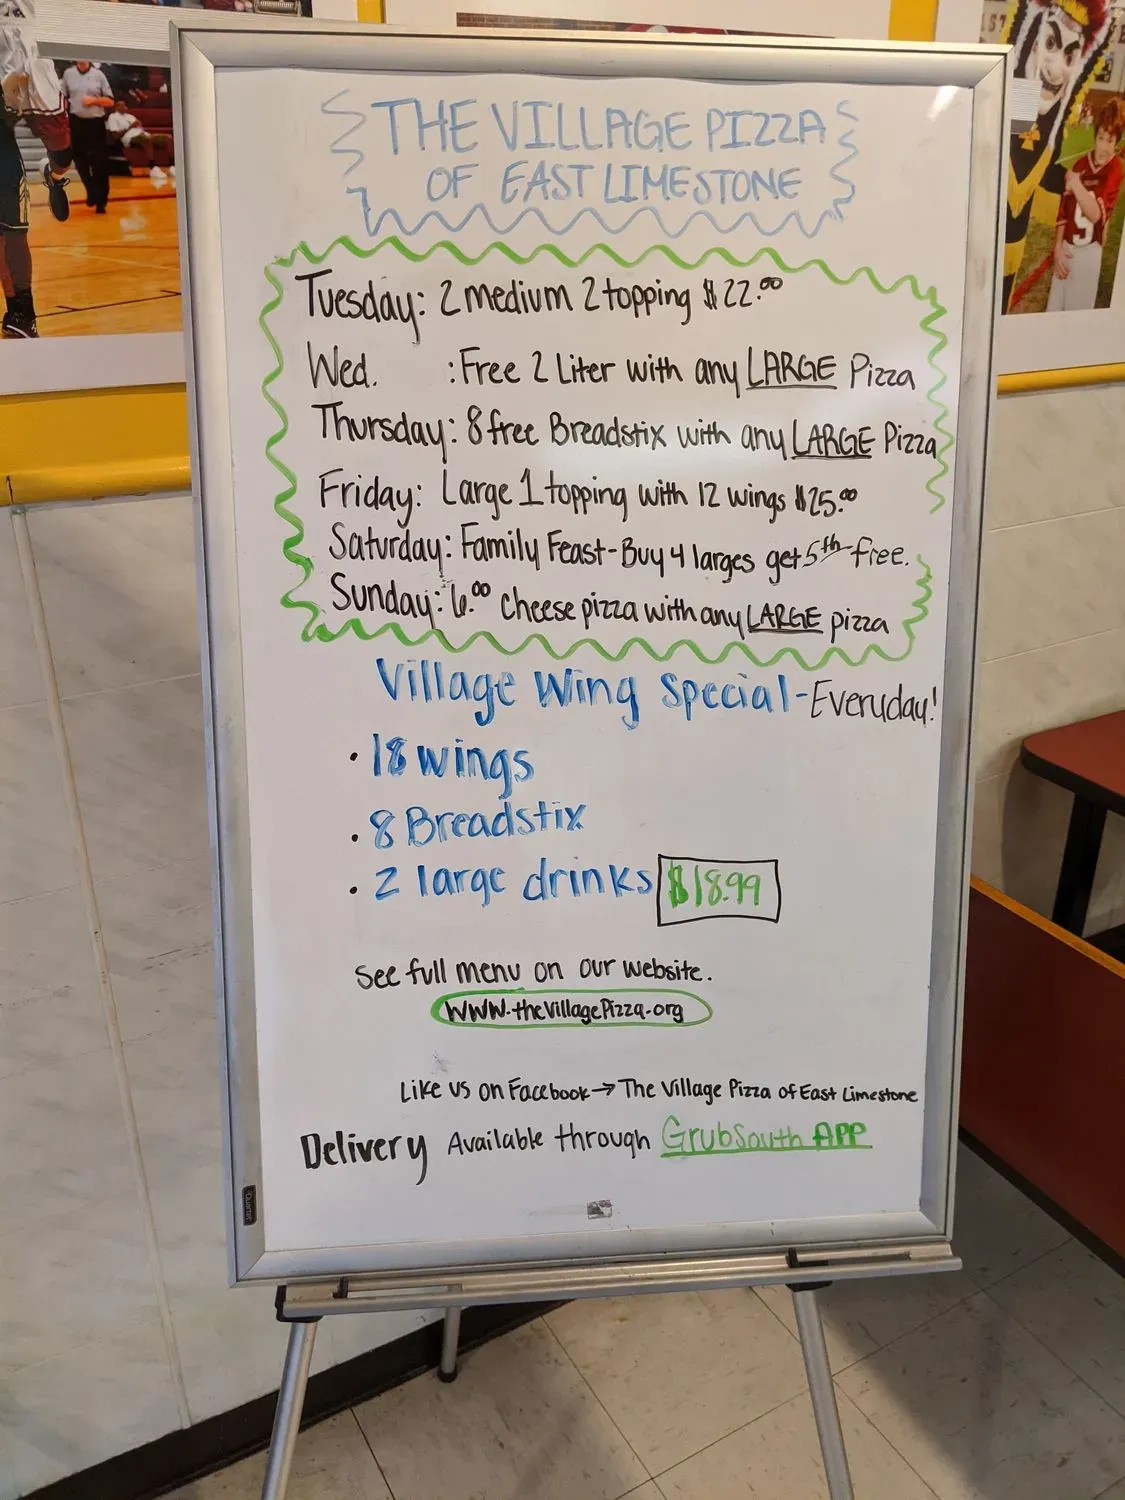 THE VILLAGE PIZZA
OF EAST LIMESTONE
Tuesday: 2 medium 2 topping $22.00
Wed. : Free 2 Liter with any LARGE Pizza
Thursday: 8 free Breadstix with any LARGE Pizza
Friday: Large 1 topping with 12 wings $25.00
Saturday: Family Feast-Buy 4 larges get 5th free.
Sunday: 6.00 cheese pizza with any LARGE pizza
Village Wing Special-Everyday!
• 18 wings
• 8 Breadstix
• 2 large drinks $18.99
See full menu on our website.
www.theVillagePizza.org
Like us on Facebook → The Village Pizza of East Limestone
Delivery Available through GrubSouth APP
Quartet